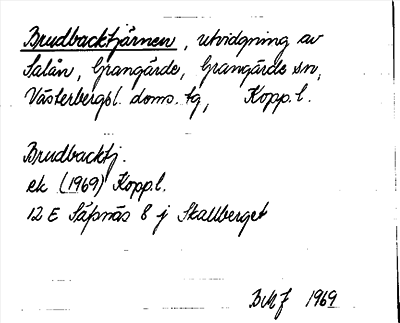 Brudbacktjärnen, utvidgning av
Salån, Grangärde, Grangärde sn,
Västerbergsl. doms. tg, Kopp. l.
Brudbacktj.
ek (1969) Kopp.l.
12 E Säfsnäs 8 j Skallberget
BMJ 1969